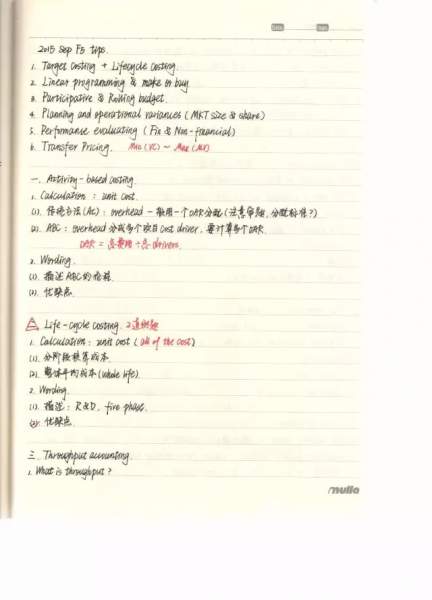 2015 Sep F5 tips.
1. Target costing + Lifecycle costing.
2. Linear programming & make or buy
3. Participative & Rolling budget.
4. Planning and operational variances (MKT size & share)
5. Performance evaluating (Fin & Non-financial)
6. Transfer Pricing. Min (VC) ~ Max (MP)
一、Activity-based costing.
1. Calculation : unit cost.
(1). 传统方法(AC) : overhead 一般用一个OAR分配(注意审题, 分配标准?)
(2). ABC : overhead 分成多个项目 cost driver, 要计算多个OAR.
OAR = 总费用 ÷ 总 drivers.
2. Wording.
(1). 描述ABC的
(2). 优缺点.
二、Life-cycle costing.
1. Calculation : unit cost (all of the cost)
(1). 分阶段核算成本.
(2). 整体平均成本(whole life).
2. Wording.
(1). 描述 : R&D, five phase.
(2). 优缺点.
三、Throughput accounting.
1. What is throughput?
nulla